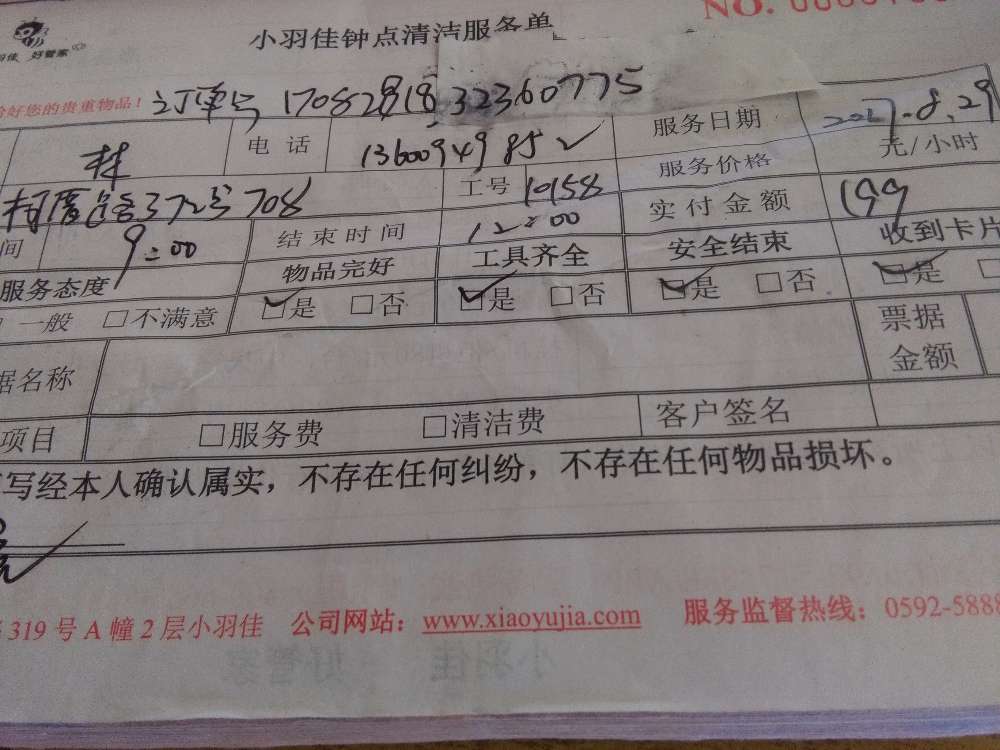 小羽佳钟点清洁服务单
NO.
好管家
您的贵重物品！ 订单号 17082818332360775
林 电话 13600949785 服务日期 8.29
372号708 工号 10158 服务价格 元/小时
9:00 结束时间 12:00 实付金额 199
服务态度 物品完好 工具齐全 安全结束 收到卡片
一般 □不满意 是 □否 是 □否 是 □否 是
名称 票据金额
项目 □服务费 □清洁费 客户签名
写经本人确认属实，不存在任何纠纷，不存在任何物品损坏。
319号A幢2层小羽佳 公司网站：www.xiaoyujia.com 服务监督热线：0592-5888